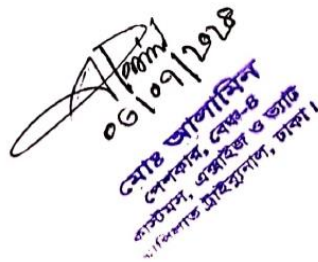 ০৬/০৭/২০২৪
মোঃ আলামিন
পেশকার, বেঞ্চ-৪
কাস্টমস, এক্সাইজ ও ভ্যাট
আপিলাত ট্রাইব্যুনাল, ঢাকা।